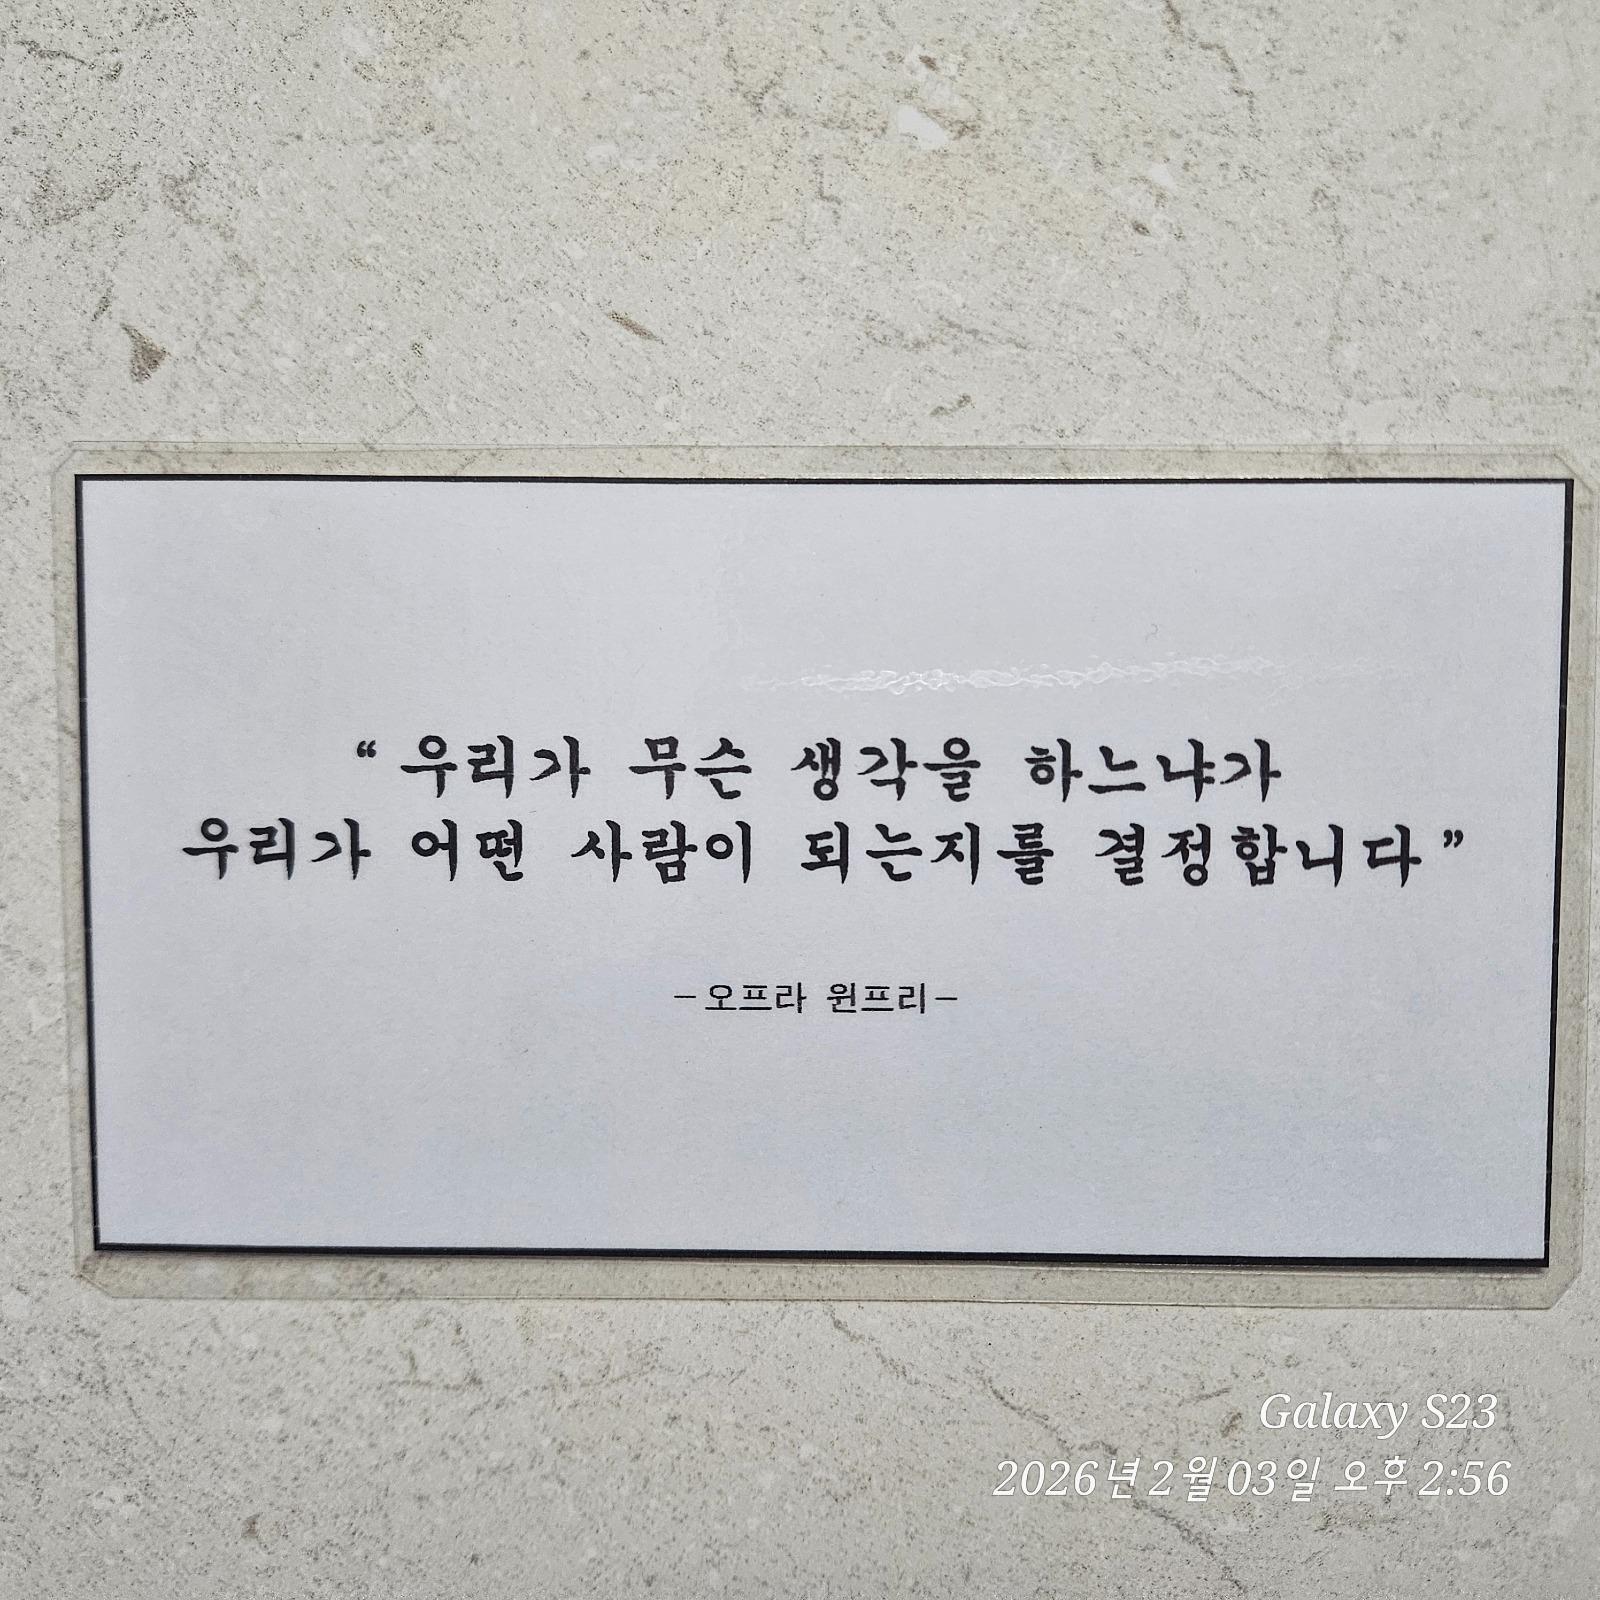 “우리가 무슨 생각을 하느냐가
우리가 어떤 사람이 되는지를 결정합니다”
-오프라 윈프리-
Galaxy S23
2026년 2월 03일 오후 2:56